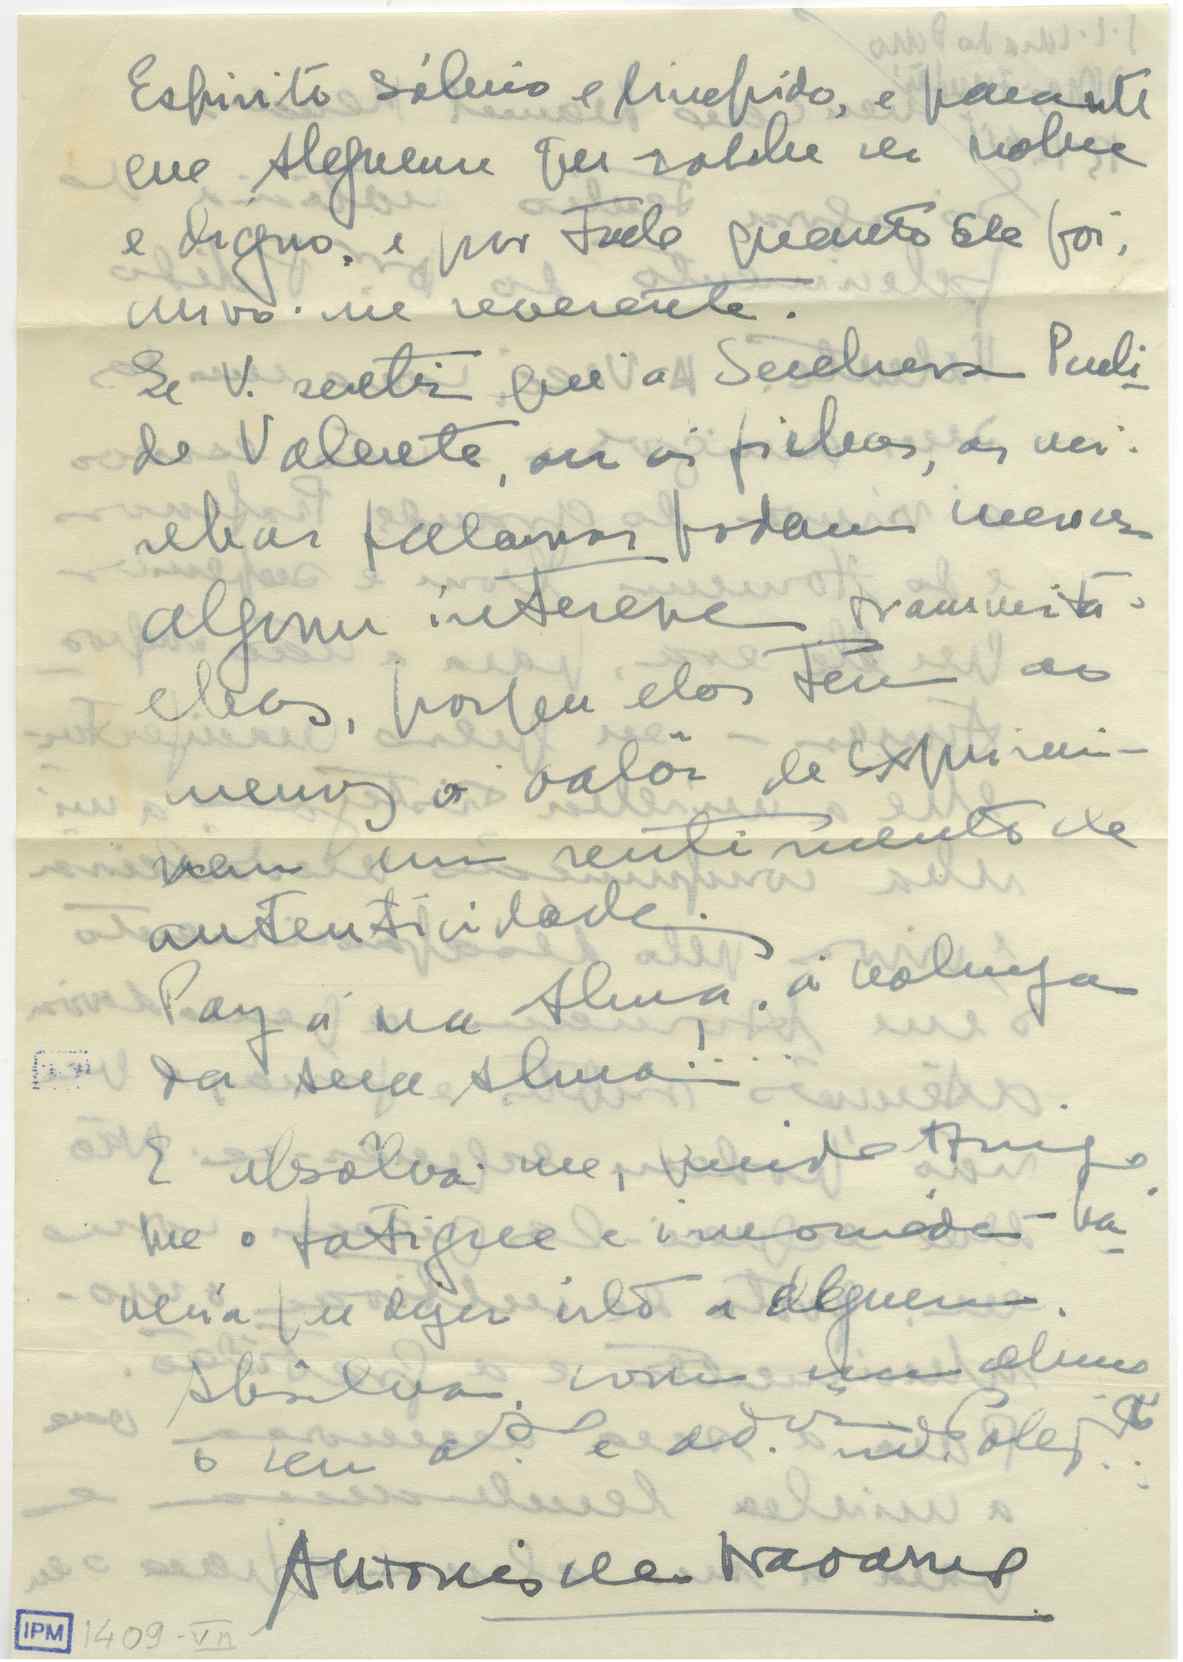 Espirito sólino e limpido, e perante
ene Alguem que soube ser nobre
e digno, e por tudo quanto Ele foi,
curvo-me reverente.
Se V. sentir que a Senhora Puli
do Valente, ou os filhos, as mi-
nhas palavras podem merecer
algum interesse transmita-
-lhas, porque elas têm ao
menos o valôr de exprimi-
rem um sentimento de
autenticidade.
Paz á sua Alma, á nobreza
da sua Alma.....
E absolva-me, querido Amigo,
que o fatigue e incomóde - pa
recia que dizer isto a Alguem.
Absolva, com um abraço
o seu a.do e ad.or
António de Navarro
IPM 1409-Vn